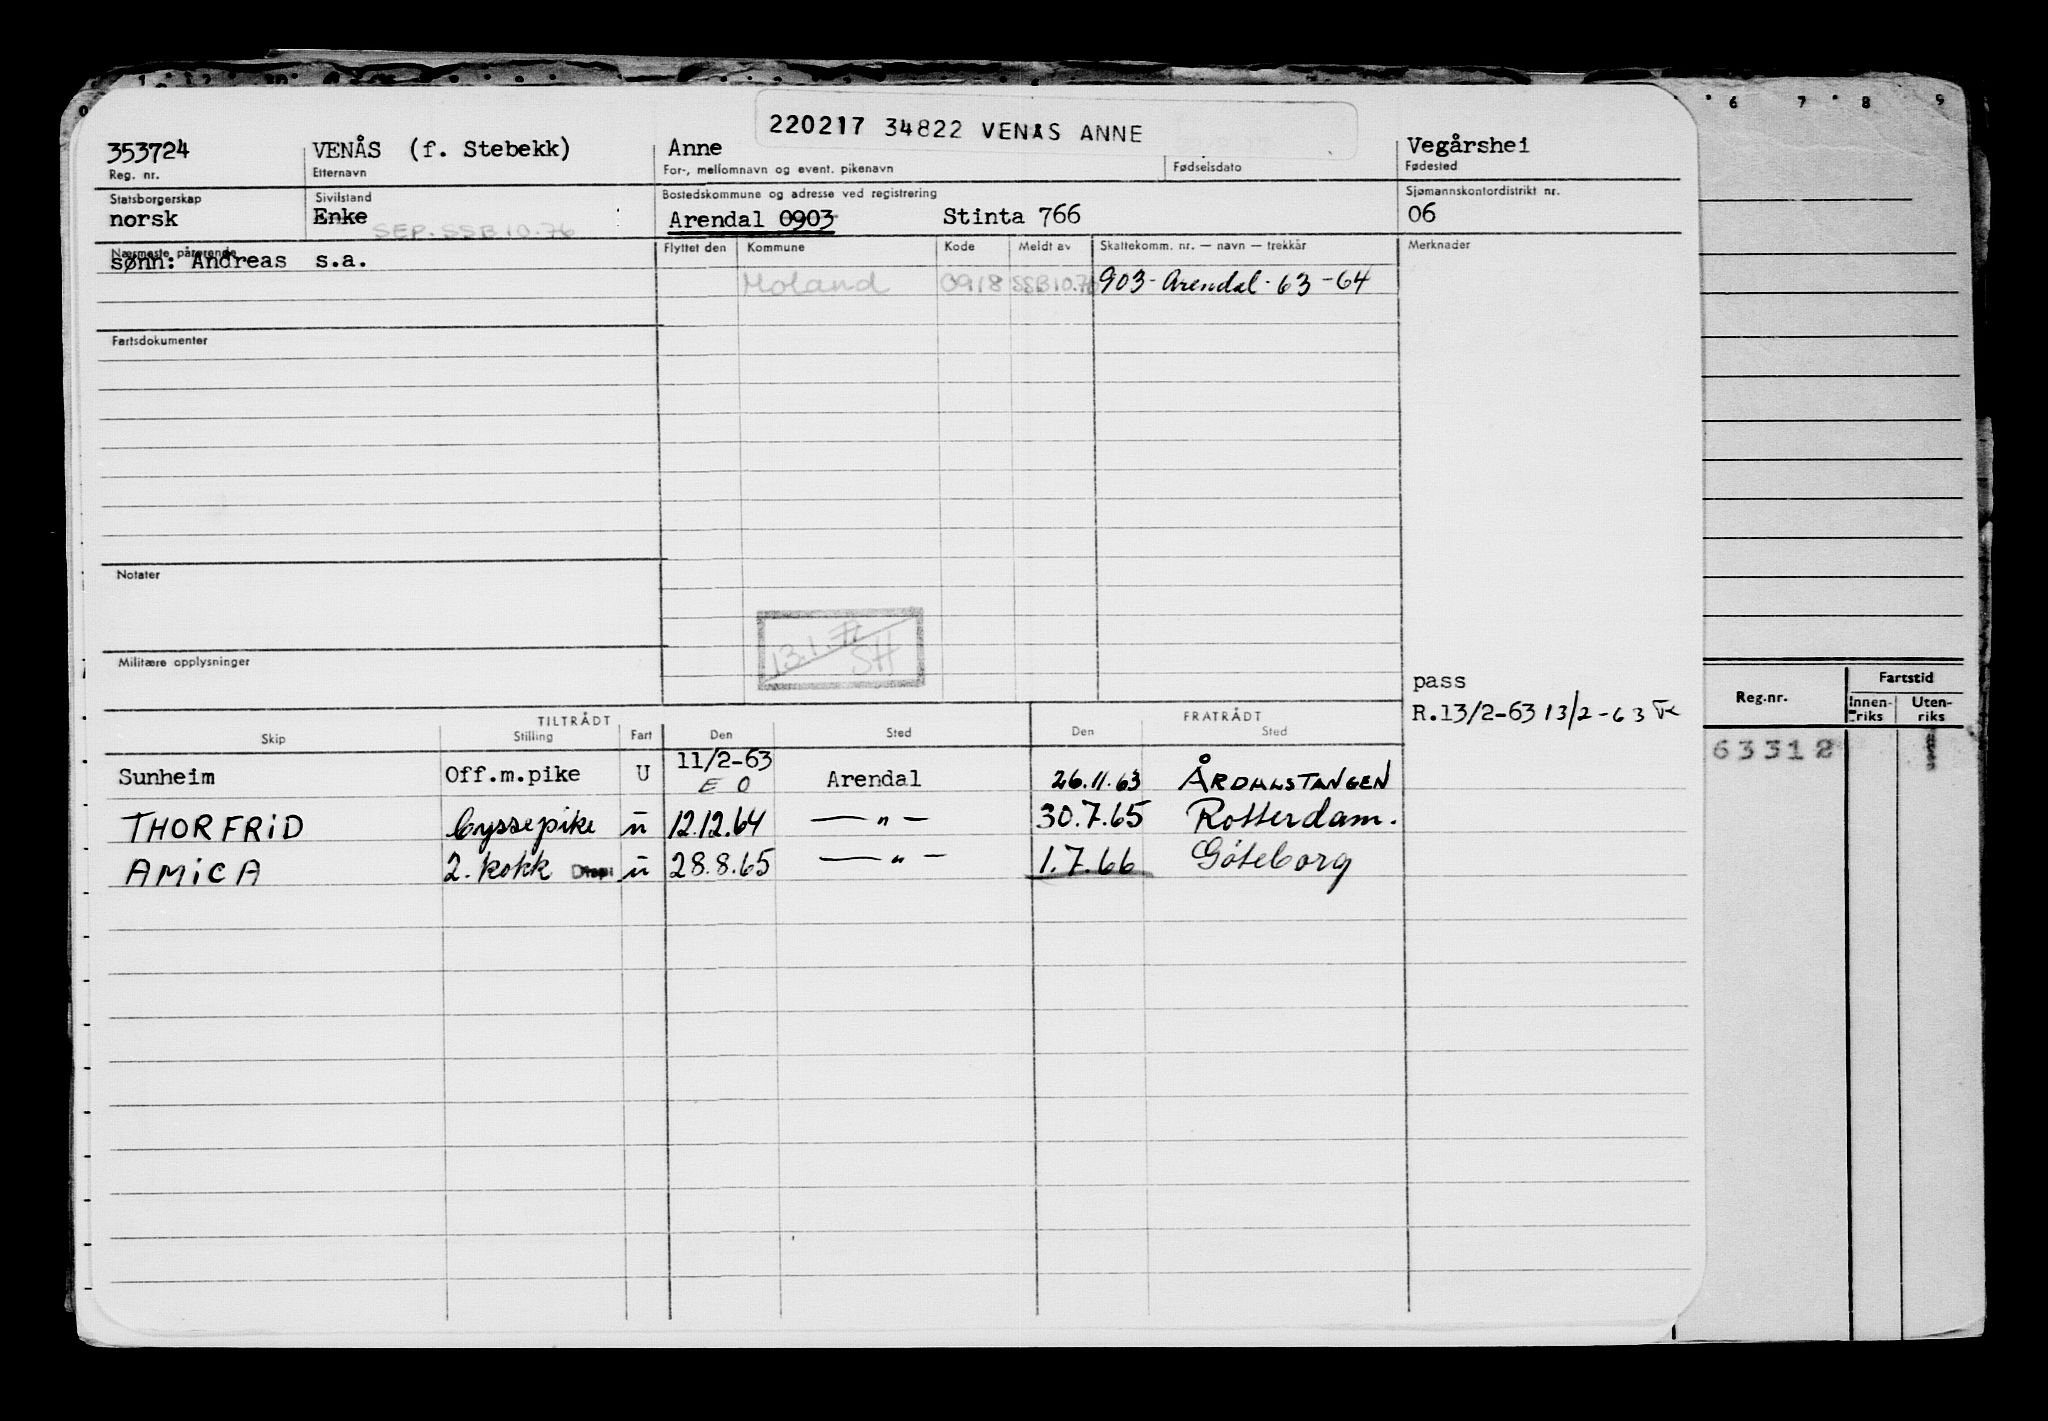 220217 34822 VENÅS ANNE
353724 VENÅS (f. Stebekk) Anne Vegårshei
Reg. nr. Etternavn For-, mellomnavn og event. pikenavn Fødselsdato Fødested
Statsborgerskap Sivilstand Bostedskommune og adresse ved registrering Sjømannskontordistrikt nr.
norsk Enke Arendal 0903 Stinta 766 06
SEP. SSB 10.76
Nærmeste pårørende Flyttet den Kommune Kode Meldt av Skattekomm. nr. — navn — trekkår Merknader
sønn: Andreas s.a.
Moland 0918 SSB 10.76 903 - Arendal - 63 - 64
Fartsdokumenter
Notater
13.1. SH
Militære opplysninger
pass
R.13/2-63 13/2-63
TILTRÅDT FRATRÅDT
Skip Stilling Fart Den Sted Den Sted
Sunheim Off.m.pike U 11/2-63 Arendal 26.11.63 ÅRDALSTANGEN
E O
THORFRID byssepike u 12.12.64 — " — 30.7.65 Rotterdam.
AMICA 2. kokk u 28.8.65 — " — 1.7.66 Göteborg
6 7 8 9
Reg.nr. Fartstid
Innen-riks Uten-riks
63312